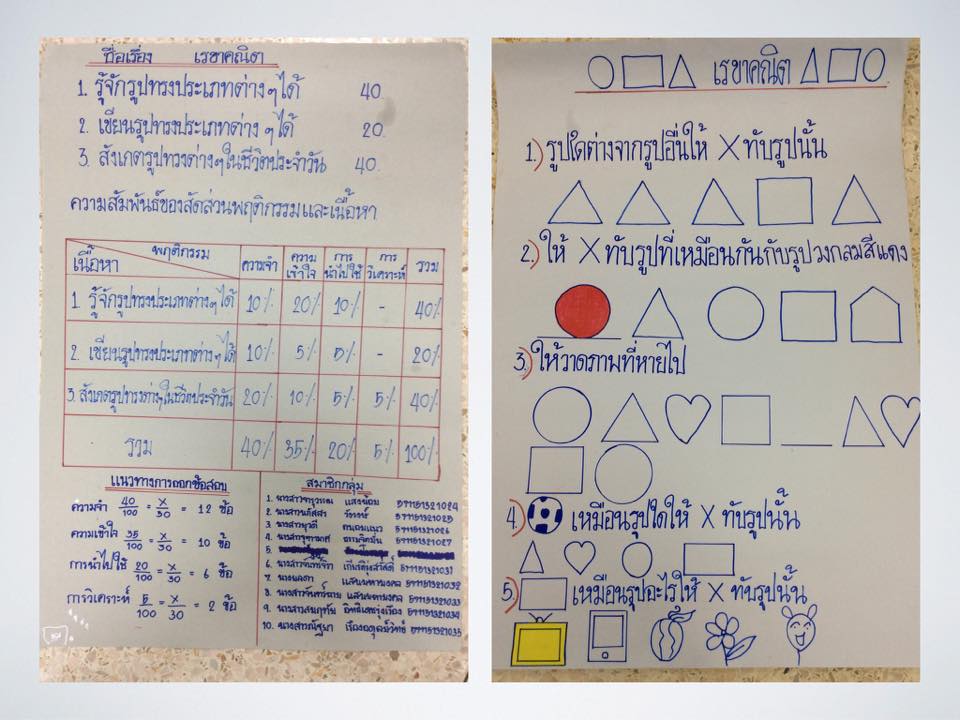 ชื่อเรื่อง เรขาคณิต
1. รู้จักรูปทรงประเภทต่างๆได้ 40
2. เขียนรูปทรงประเภทต่างๆได้ 20
3. สังเกตรูปทรงต่างๆในชีวิตประจำวัน 40
ความสัมพันธ์ของสัดส่วนพฤติกรรมและเนื้อหา
พฤติกรรม
เนื้อหา
ความจำ ความเข้าใจ การนำไปใช้ การวิเคราะห์ รวม
1. รู้จักรูปทรงประเภทต่างๆได้ 10% 20% 10% - 40%
2. เขียนรูปทรงประเภทต่างๆได้ 10% 5% 5% - 20%
3. สังเกตรูปทรงต่างๆในชีวิตประจำวัน 20% 10% 5% 5% 40%
รวม 40% 35% 20% 5% 100%
แนวทางการออกข้อสอบ
ความจำ 40/100 = X/30 = 12 ข้อ
ความเข้าใจ 35/100 = X/30 = 10 ข้อ
การนำไปใช้ 20/100 = X/30 = 6 ข้อ
การวิเคราะห์ 5/100 = X/30 = 2 ข้อ
สมาชิกกลุ่ม
1. นางสาวจารุวรรณ
2. นางสาวนภัสสร
3.
4.
5.
6.
7.
8.
9.
10. นางสาวณัฐยา
เรขาคณิต
1.) รูปใดต่างจากรูปอื่นให้ X ทับรูปนั้น
2.) ให้ X ทับรูปที่เหมือนกันกับรูปวงกลมสีแดง
3.) ให้วาดภาพที่หายไป
4.) เหมือนรูปใดให้ X ทับรูปนั้น
5.) เหมือนรูปอะไรให้ X ทับรูปนั้น